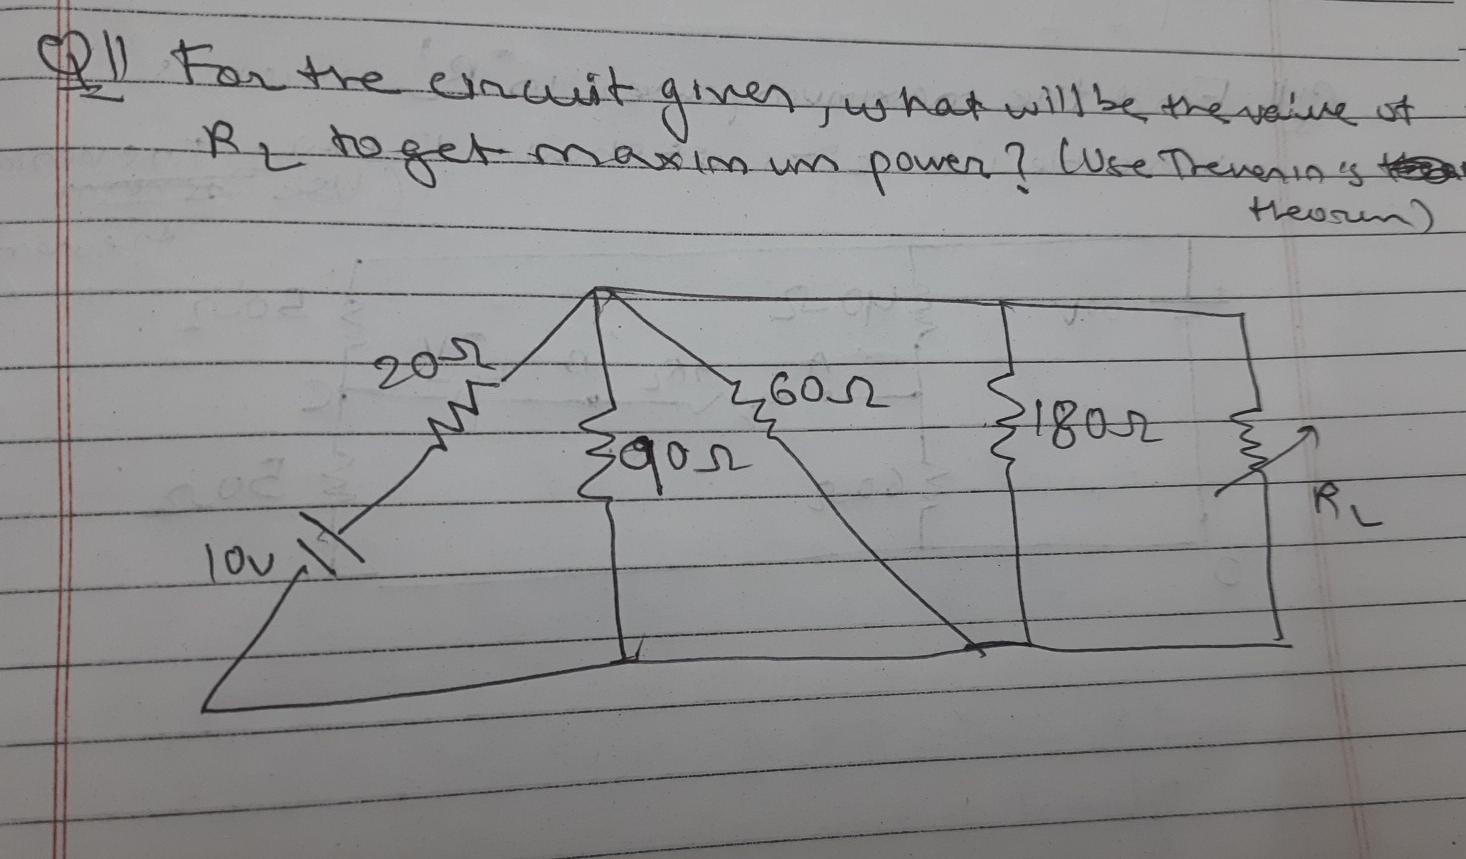 Q11 For the circuit given, what will be the value of
RL to get maximum power? (Use Thevenin's
theorem)
20Ω
60Ω
180Ω
90Ω
RL
10V